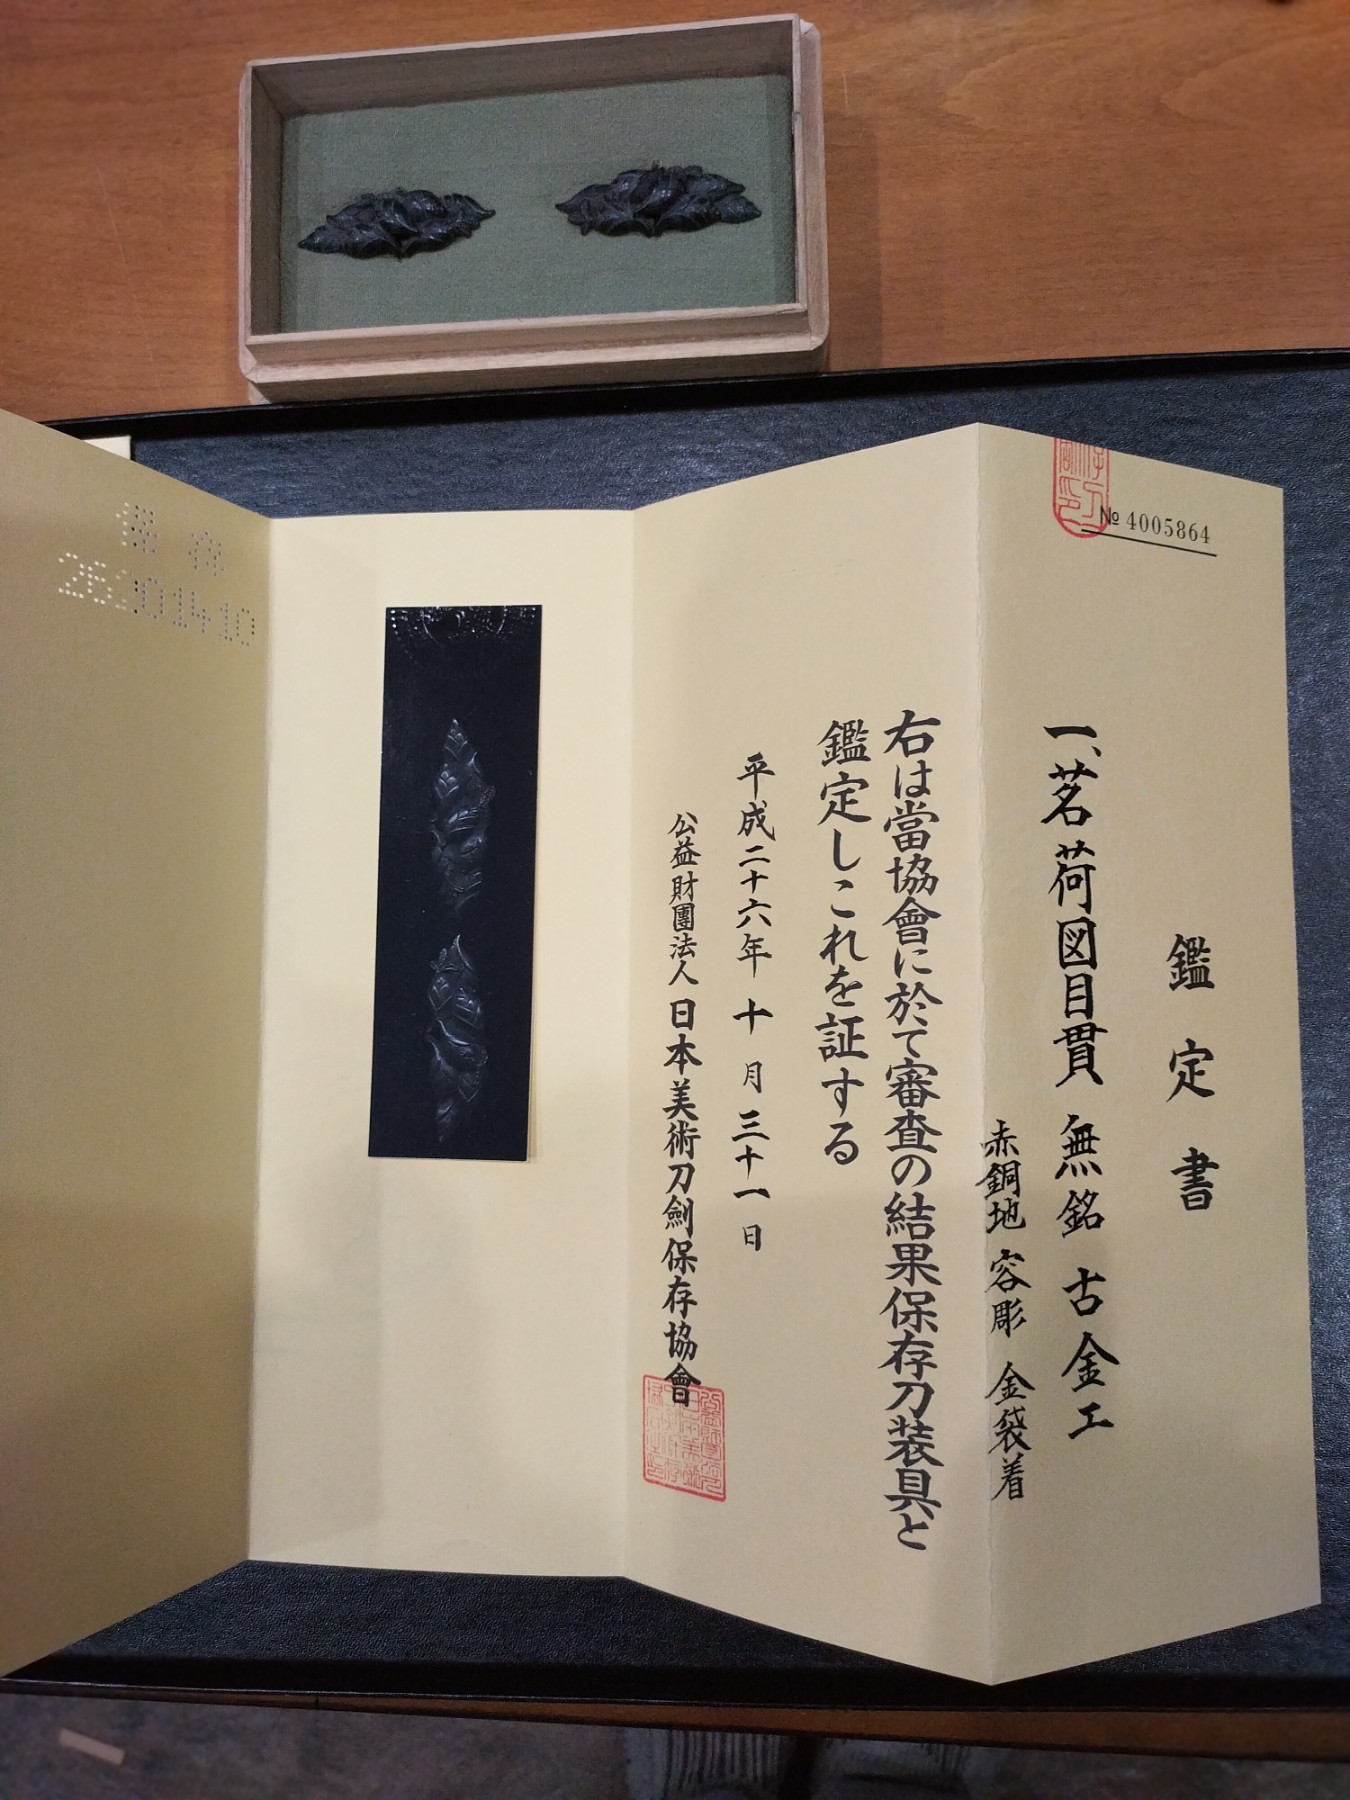 № 4005864
鑑定書
一、茗荷図目貫 無銘 古金工
赤銅地 容彫 金袋着
右は當協會に於て審査の結果保存刀装具と
鑑定しこれを証する
平成二十六年 十月三十一日
公益財團法人 日本美術刀劍保存協會